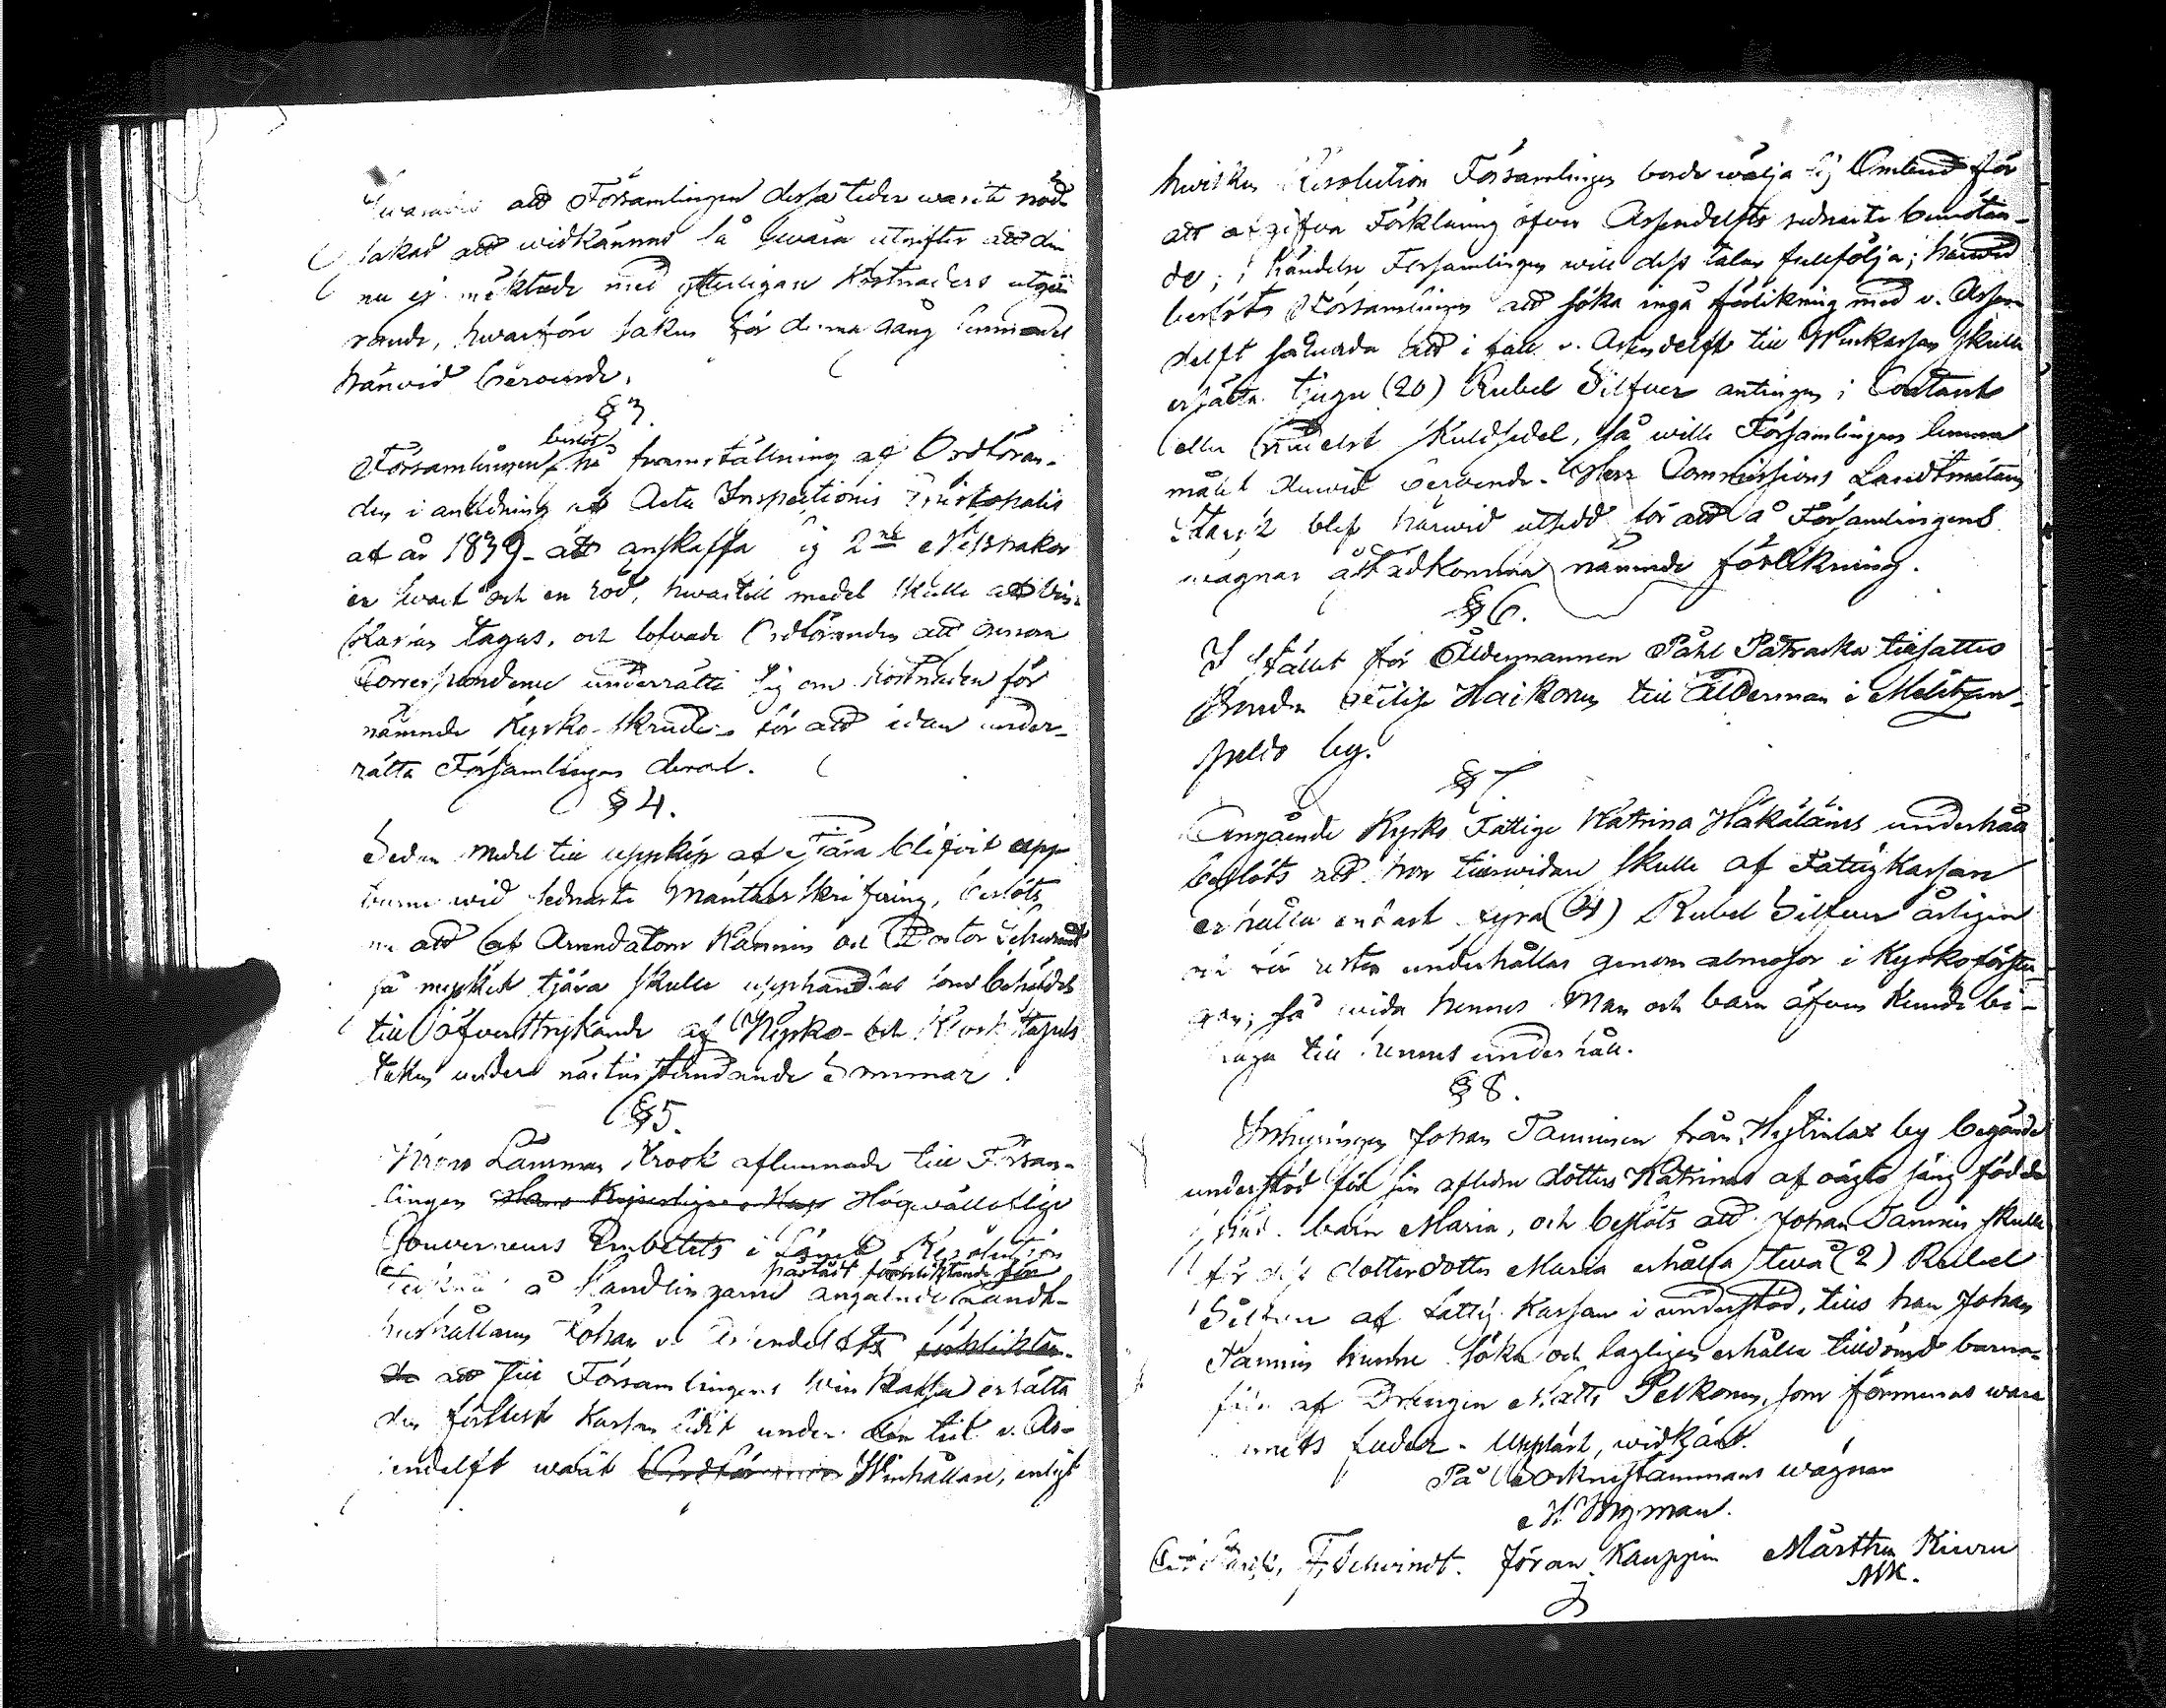 att Församlingen dessa tider warit nöd-
sakad att widkännas så swåra utgifter att den
nu ej mäktade med ytterligare kostnaders utgö-
rande, hwarföre saken för denna gång lemnades
härwid beroende.
§ 3.
Församlingen beslöt på framställning af Ordföran-
den i anledning af Acta Inspectionis Episkopalis
af år 1839 - att anskaffa sig 2ne Messhakar
en swart och en röd, hwartill medel skulle
tagas, och lofvade Ordföranden att genom
Correspondence underrätta sig om kostnaden för
nämnde Kyrko-skrudar för att sedan under-
rätta Församlingen derom.
§ 4.
Sedan medel till uppköp af Tjära blifvit upp-
burne wid sednaste Mantals Skrifning, beslöts
nu att af Arrendatorn Kämmin och Pastor Schwindt
så mycket tjära skulle upphandlas som behöfdes
till öfverstrykande af Kyrko- och Klock stapels
taken under nästinstundande Sommar.
§ 5.
Krono Länsman Krook aflemnade till Försam-
lingen Hans Kejserliga Högwälloflige
Gouverneurs Embetets i Länet Resolution
påstått förpliktande för
å Handlingarne angående Landt-
hushållaren Johan v. Essendelft förpliktan-
de att till Församlingens Win Kassa ersätta
den förlust Kassan lidit under den tid v. Es-
sendelft warit Ordförande Winhållare, enligt
hwilken Resolution Församlingen borde wälja sig Ombud för
att afgifva Förklaring öfver Assendelfts sednaste bemötan-
de, i händelse Församlingen will dess talan fullfölja; härwid
beslöts Församlingen att söka ingå förlikning med v. Assen-
delft sålunda att i fall v. Assendelft till Winkassan skulle
ersätta tjugu (20) Rubel Silfver antingen i Contant
eller medelst skuldsedel, så wille Församlingen lemna
målet derwid beroende. Herr Commissions Landtmätaren
blef härwid utsedd för att å Församlingens
wägnar åstadkomma nämnde förlikning.
§ 6.
I stället för Åldermannen Påhl Patraska tillsattes
Bonden Haikonen till Ålderman i Melitzan-
pelto by.
§ 7.
Angående Kyrko Fattige Katrina Hakaläins underhåll
beslöts att hon tillswidare skulle af Fattig Kassan
erhålla endast fyra (4) Rubel Silfver årligen
och för resten underhållas genom almosor i Kyrkoförstu-
gan; så wida hennes Man och barn äfven kunde bi-
draga till hennes underhåll.
§ 8.
Inhysingen Johan Tanninen från Hytinlax by begärde
understöd för sin aflidne dotters Katrinas af oägta säng födde
barn Maria, och beslöts att Johan Tannin skulle
för dess dotterdotter Maria erhålla twå (2) Rubel
Silfver af Fattig Kassan i understöd, tills han Johan
Tannin hunne söka och lagligen erhålla tilldömd barna-
föda af Drengen Matts Pelkonen, som förmenas wara
barnets fader. Uppläst, widkänt.
På Sockenstämmans wägnar
H. Wigman.
F. Schwindt. Jöran Kauppin Mårthen Kiuru
MK.